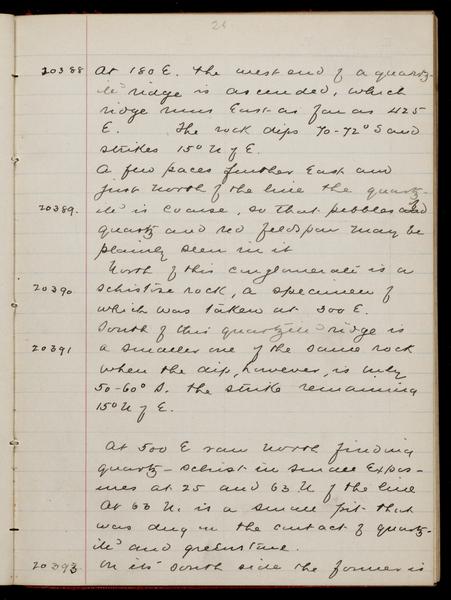 20388 At 180 E. the west end of a quartz-
ite ridge is ascended, which
ridge runs East as far as 425
E. The rock dips 70-72° S and
strikes 15° N of E.
A few paces further East and
just North of the line the quartz-
20389. ite is coarse, so that pebbles of
quartz and red feldspar may be
plainly seen in it
North of this conglomerate is a
20390 schistose rock, a specimen of
which was taken at 300 E.
South of this quartzite ridge is
20391 a smaller one of the same rock
when the dip, however, is only
50-60° S. the strike remaining
15° N of E.
At 500 E ran North finding
quartz-schist in small expos-
ures at 25 and 63 N of the line
At 63 N. is a small pit that
was dug on the contact of quartz-
ite and greenstone.
20393 On its south side the former is